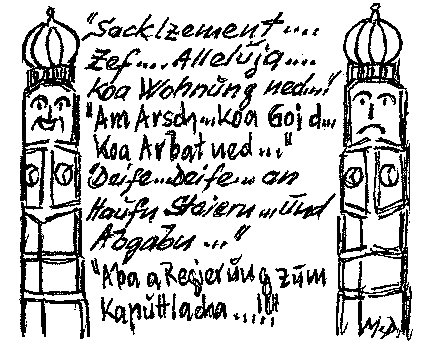 "Sacklzement....
Zef.... Alleluja....
Koa Wohnung ned...!
"Am Arsch...koa Goid...
Koa Arbat ned...."
Deife...Deife... an
Haufn Staiern...und
Abgabn..."
"Aba a Regierung zum
Kaputtlacha...!!!"
M.D.